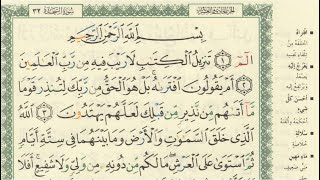 سورة السجدة ٣٢
بِسْمِ اللَّهِ الرَّحْمَٰنِ الرَّحِيمِ
الٓمٓ ١ تَنزِيلُ الْكِتَٰبِ لَا رَيْبَ فِيهِ مِن رَّبِّ الْعَٰلَمِينَ
٢ أَمْ يَقُولُونَ افْتَرَىٰهُ بَلْ هُوَ الْحَقُّ مِن رَّبِّكَ لِتُنذِرَ قَوْمًا
مَّآ أَتَىٰهُم مِّن نَّذِيرٍ مِّن قَبْلِكَ لَعَلَّهُمْ يَهْتَدُونَ ٣ اللَّهُ
الَّذِي خَلَقَ السَّمَٰوَٰتِ وَالْأَرْضَ وَمَا بَيْنَهُمَا فِي سِتَّةِ أَيَّامٍ
ثُمَّ اسْتَوَىٰ عَلَى الْعَرْشِ مَا لَكُم مِّن دُونِهِ مِن وَلِيٍّ وَلَا شَفِيعٍ أَفَلَا
افتراه